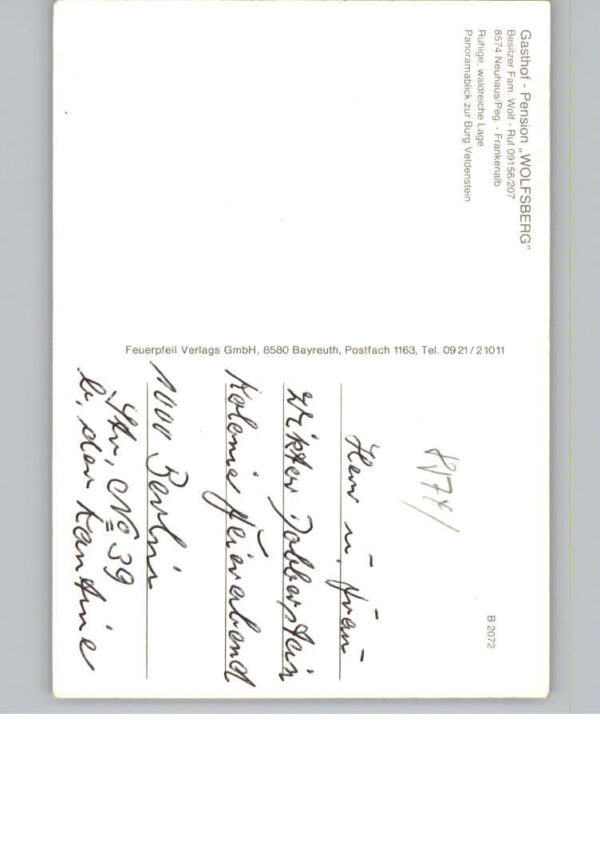 Gasthof - Pension „WOLFSBERG"
Besitzer Fam. Wolf - Ruf 09156/207
8574 Neuhaus/Peg. - Frankenalb
Ruhige, waldreiche Lage
Panoramablick zur Burg Veldenstein
Feuerpfeil Verlags GmbH, 8580 Bayreuth, Postfach 1163, Tel. 09 21 / 2 10 11
B 2072
Herr u. Frau
Dobberstein
Kolonie Feierabend
1000 Berlin
Str, No 39
b, der Kantine